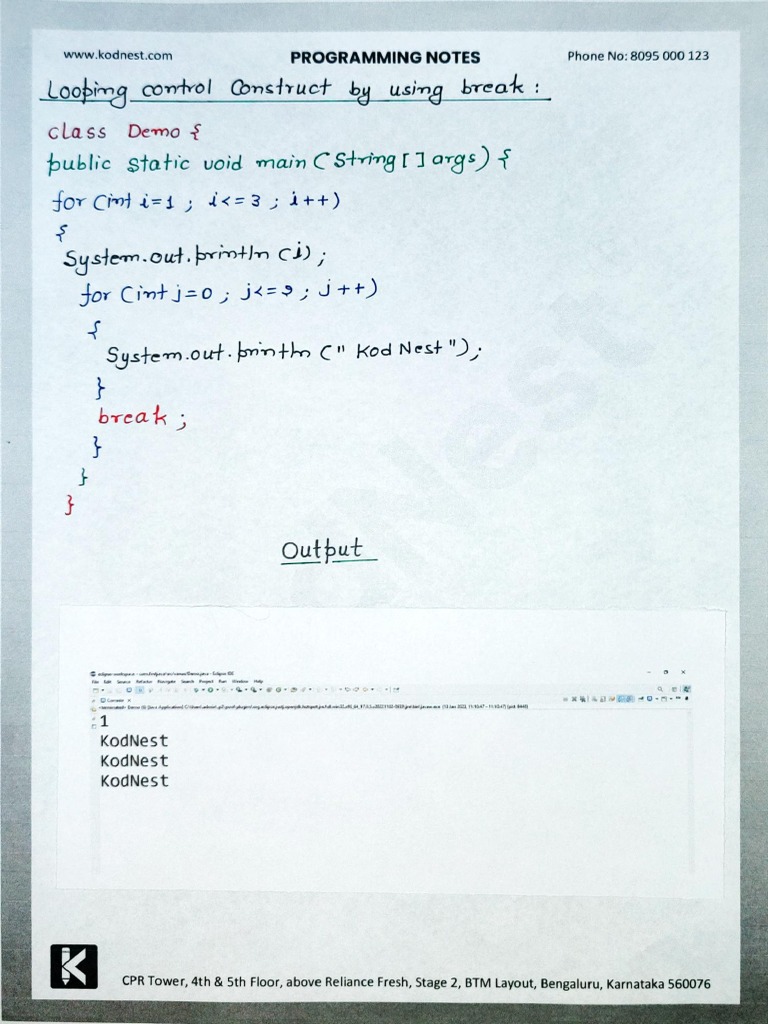 www.kodnest.com PROGRAMMING NOTES Phone No: 8095 000 123
Looping control Construct by using break :
class Demo {
public static void main (String[] args) {
for (int i=1 ; i<=3 ; i++)
{
System.out.println (i) ;
for (int j=0 ; j<=2 ; j++)
{
System.out.println (" Kod Nest ") ;
}
break ;
}
}
}
Output
File Edit Source Refactor Navigate Search Project Run Window Help
Console
1
KodNest
KodNest
KodNest
CPR Tower, 4th & 5th Floor, above Reliance Fresh, Stage 2, BTM Layout, Bengaluru, Karnataka 560076